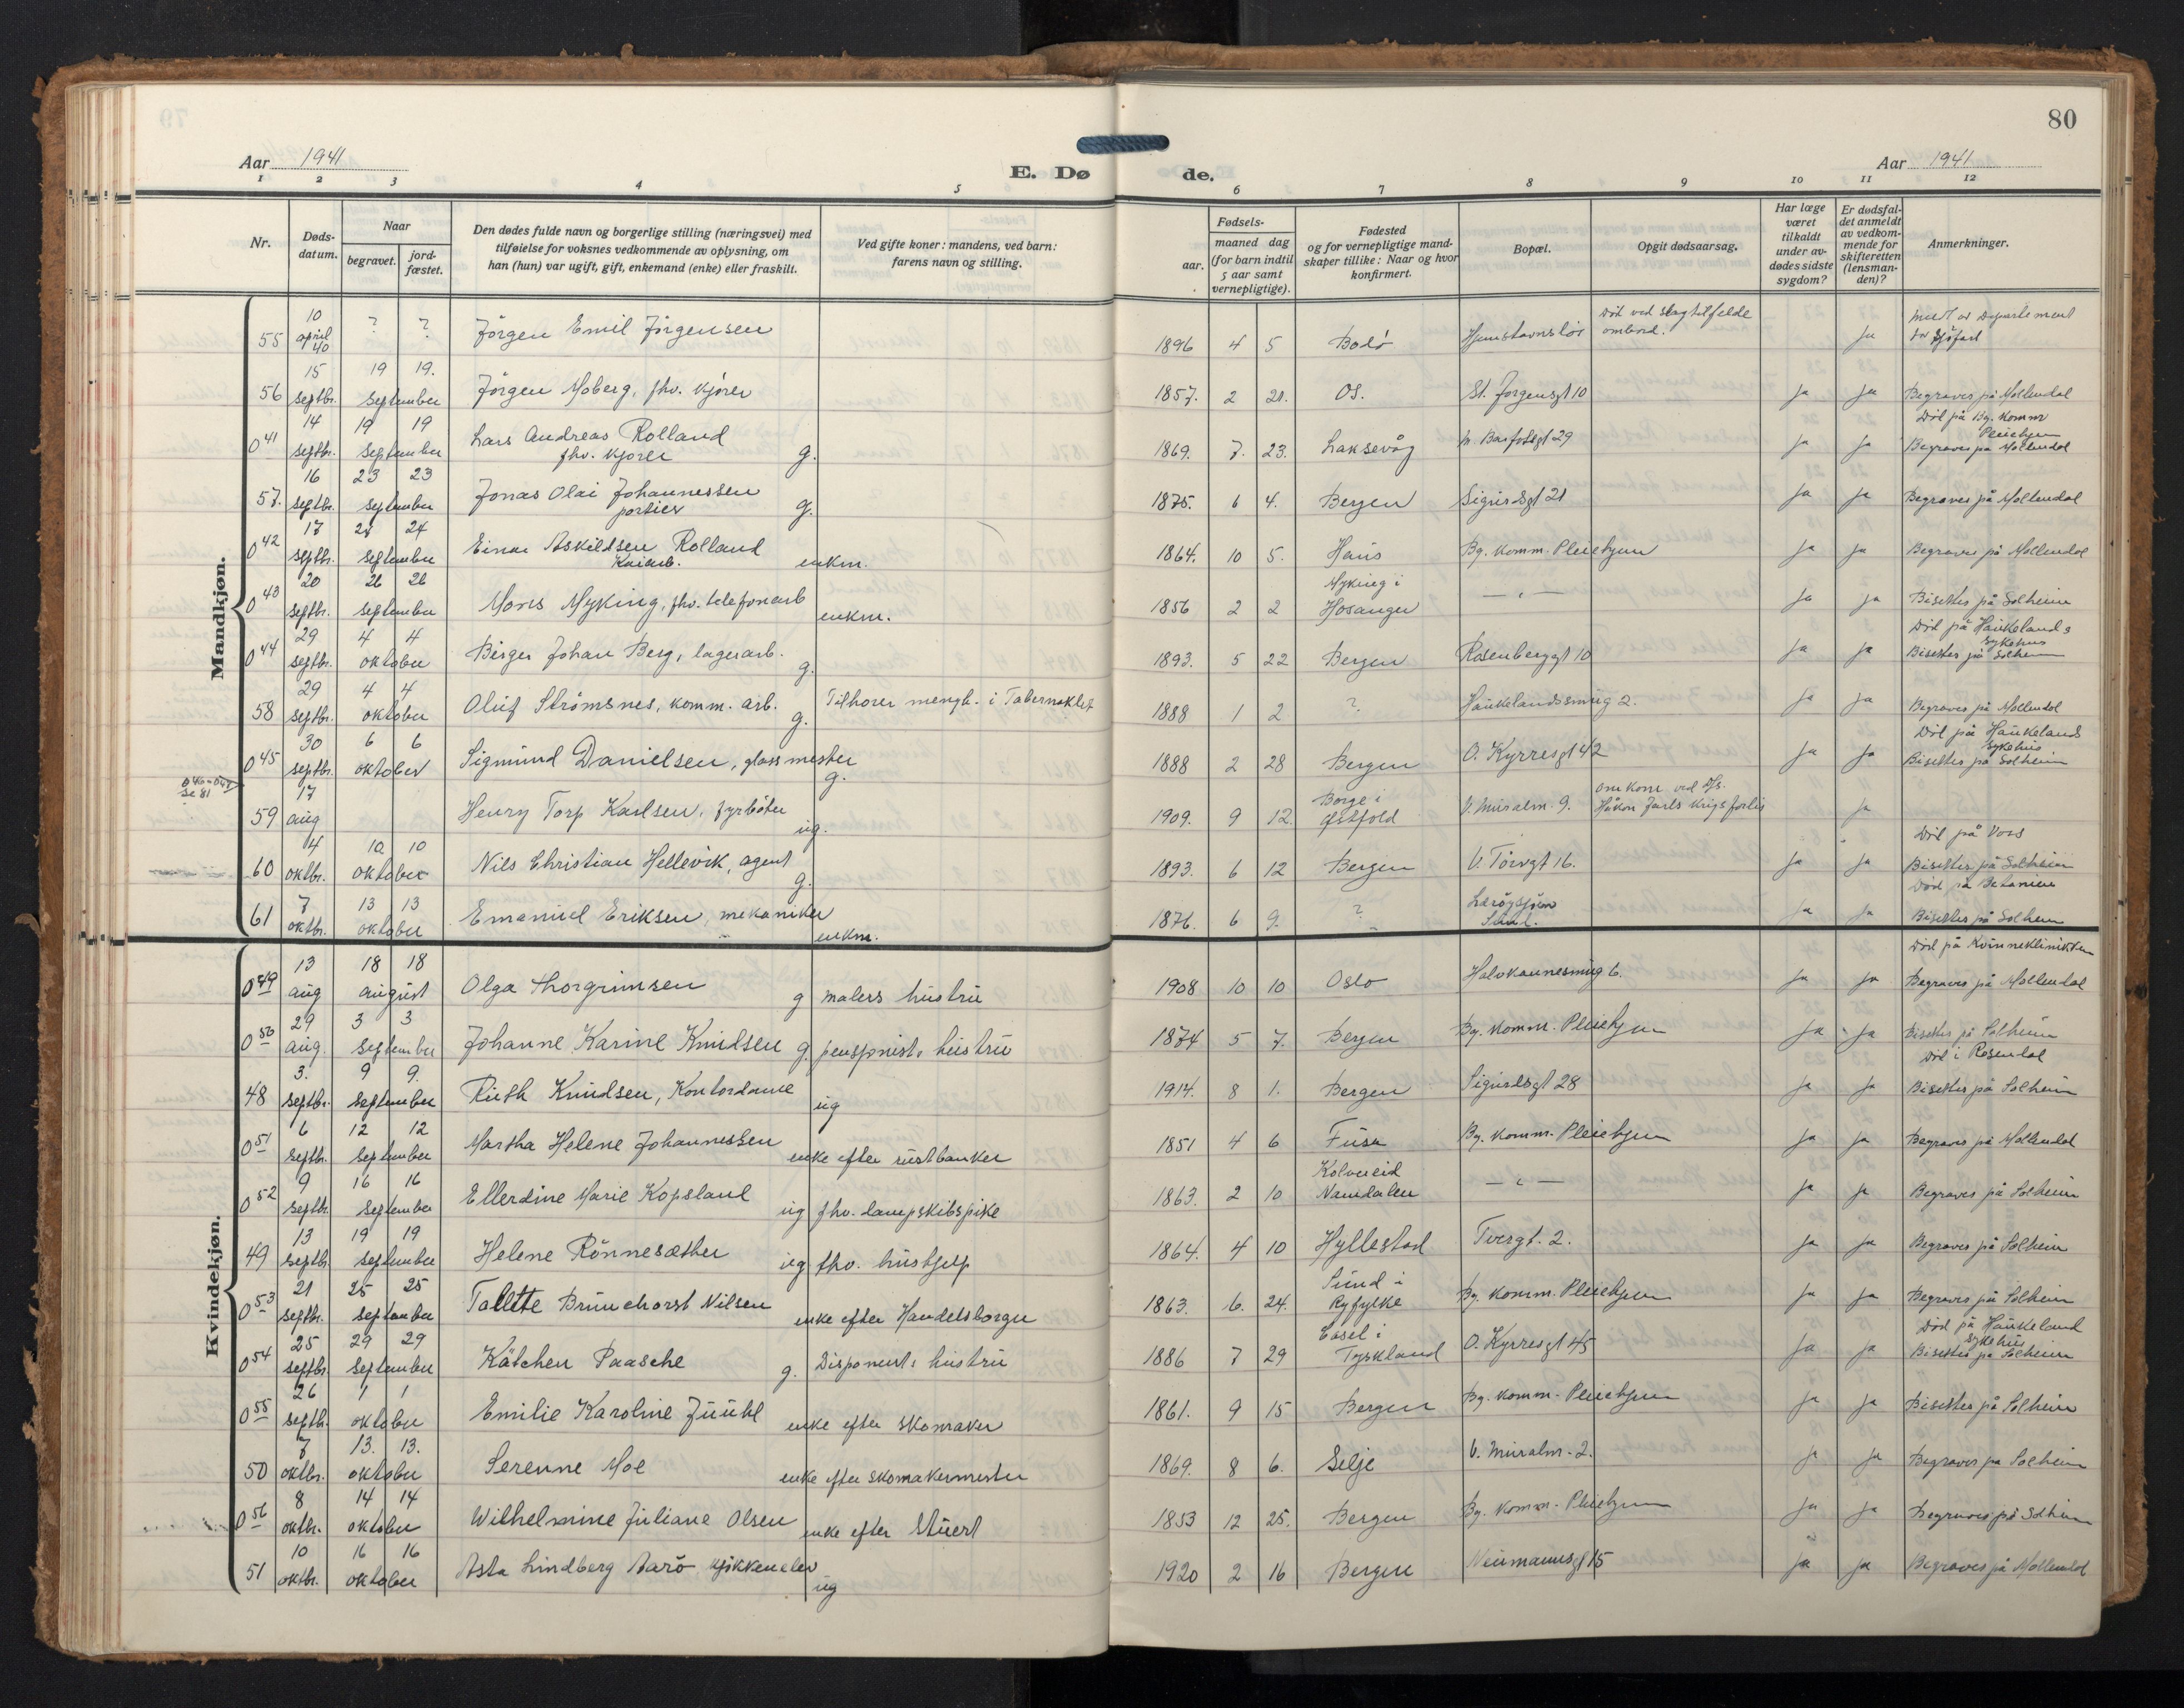 80
Aar 1941
E. Døde.
Aar 1941
1 2 3 4 5 6 7 8 9 10 11 12
Nr.
Døds-datum.
Naar
begravet.
jord-fæstet.
Den dødes fulde navn og borgerlige stilling (næringsvei) med
tilføielse for voksnes vedkommende av oplysning, om
han (hun) var ugift, gift, enkemand (enke) eller fraskilt.
Ved gifte koner: mandens, ved barn:
farens navn og stilling.
Fødsels-
aar.
maaned dag
(for barn indtil
5 aar samt
vernepligtige).
Fødested
og for vernepligtige mand-
skaper tillike: Naar og hvor
konfirmert.
Bopæl.
Opgit dødsaarsag.
Har læge
været
tilkaldt
under av-
dødes sidste
sygdom?
Er dødsfal-
det anmeldt
av vedkom-
mende for
skifteretten
(lensman-
den)?
Anmerkninger.
Mandkjøn.
55 10 april 40 ? ? Jörgen Emil Jörgensen 1896 4 5 Bodö Hjemstavnslös Död ved slagtilfelde ombord. ja Meldt av Departement for Sjöfart
56 15 septbr. 19 19. september Jörgen Moberg, fhv. kjörer 1857. 2 21. Os. St. Jorgensgt 10 ja ja Begraves på Mollendal
0 41 14 septbr. 19 19 september Lars Andreas Rolland fhv. kjorer g. 1869. 7. 23. Laksevåg Barfotsgt 29 ja ja Död på Bg. Komm Pleiehjem Begraves på Mollendal
57. 16 septbr. 23 23 september Jonas Olai Johannessen portier g. 1875. 6 4. Bergen Sigurdsgt 21 ja ja Begraves på Mollendal
0 42 17 septbr. 24 24 september Einar Askildsen Rolland Kaiarb. enkm. 1864. 10 5. Haus Bg. Komm. Pleiehjem ja ja Begraves på Mollendal
0 43 20 septbr. 26 26 september Mons Myking, fhv. telefonarb enkm. 1856 2 2 Myking i Hosanger — " — ja ja Bisettes på Solheim
0 44 29 septbr. 4 4 oktober Birger Johan Berg, lagerarb. g. 1893. 5 22 Bergen Rosenberggt 10 ja ja Död på Haukelands Sykehus Bisettes på Solheim
58 29 septbr. 4 4 oktober Oluf Strömsnes, komm. arb. g. Tilhorer mengh. i Tabernaklet 1888 1 2 ? Haukelandssmug 2. ja ja Begraves på Mollendal
0 45 30 septbr. 6 6 oktober Sigmund Danielsen, glassmester g. 1888 2 28 Bergen O. Kyrresgt 42 ja ja Död på Haukelands Sykehus Bisettes på Solheim
0 46 - 0 48 se 81
59 17 aug Henry Torp Karlsen, fyrböter ug. 1909. 9 12. Borge i Østfold V. Muralm. 9. omkom ved D/s. Håkon Jarls krigsforlis ja
60 4 oktbr. 10 10 oktober Nils Christian Hellevik, agent g. 1893. 6 12 Bergen V. Torvgt 16. ja ja Död på Voss Bisettes på Solheim
61 7 oktbr. 13 13 oktober Emanuel Eriksen, mekaniker enkm. 1876. 6 9. ? ja ja Död på Betanien Bisettes på Solheim
Kvindekjøn.
0 49 13 aug 18 18 august Olga Thorgrimsen g malers hustru 1908 10 10 Oslo Halvkannesmug 6. ja ja Död på Kvinneklinikken Begraves på Mollendal
0 50 29 aug. 3 3 september Johanne Karine Knudsen g. pensjonists hustru 1874 5 7. Bergen Bg. Komm. Pleiehjem ja ja Bisettes på Solheim
48 3. septbr. 9 9. september Ruth Knudsen, Kontordame ug 1914. 8 1. Bergen Sigurdsgt 28 ja ja Död i Rosendal Bisettes på Solheim
0 51 6 septbr. 12 12 september Martha Helene Johannessen enke efter rustbanker 1851 4 6 Fusa Bg. Komm. Pleiehjem ja ja Begraves på Mollendal
0 52 9 septbr. 16 16 september Ellerdine Marie Kopsland ug fhv. dampskibspike 1863. 2 10 Kolvereid Namdalen — " — ja ja Begraves på Solheim
49 13 septbr. 19 19 september Helene Rönnesæther ug fhv. hushjelp 1864. 4 10 Hyllestad Tvergt. 2. ja ja Begraves på Solheim
0 53 21 septbr. 25 25 september Tallette Brunchorst Nilsen enke efter Handelsborger 1863. 6. 24. Sund i Ryfylke Bg. Komm. Pleiehjem ja ja Begraves på Solheim
0 54 25 septbr. 29 29 september Kätchen Paasche g. Disponents hustru 1886 7 29 Casel i Tyskland O. Kyrresgt 45 ja ja Död på Haukeland Sykehus Bisettes på Solheim
0 55 26 septbr. 1 1 oktober Emilie Karoline Juuhl enke efter skomaker 1861. 9 15 Bergen Bg. Komm. Pleiehjem ja ja Bisettes på Solheim
50 7 oktbr. 13. 13. oktober Serenne Moe enke efter skomakermester 1869. 8 6. Selje V. Muralm. 2. ja ja Begraves på Solheim
0 56 8 oktbr. 14 14 oktober Wilhelmine Juliane Olsen enke efter Stuert 1853 12 25. Bergen Bg. Komm. Pleiehjem ja ja Begraves på Solheim
51 10 oktbr. 16 16 oktober Asta Lindberg Aarö kjökkenelev ug 1920 2 16 Bergen Neumannsgt 15 ja ja Begraves på Mollendal